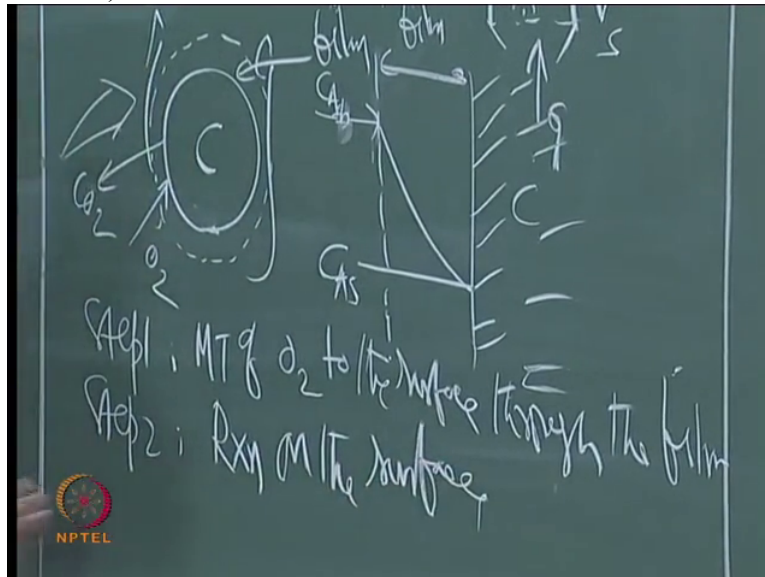 film film
C_Ab
C
CO2
O2
C
C_As
Step 1 : MT of O2 to the surface through the film
Step 2 : Rxn on the surface
NPTEL